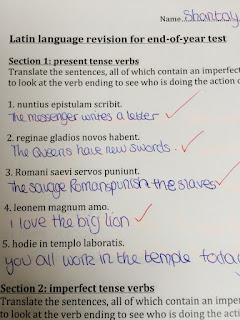 Name..Shantay
Latin language revision for end-of-year test
Section 1: present tense verbs
Translate the sentences, all of which contain an imperfect
to look at the verb ending to see who is doing the action
1. nuntius epistulam scribit.
The messenger writes a letter
2. reginae gladios novos habent.
The Queens have new swords.
3. Romani saevi servos puniunt.
The savage Romans punish the slaves
4. leonem magnum amo.
I love the big lion
5. hodie in templo laboratis.
you all work in the temple today
Section 2: imperfect tense verbs
Translate the sentences, all of which contain an imper
to look at the verb ending to see who is doing the action